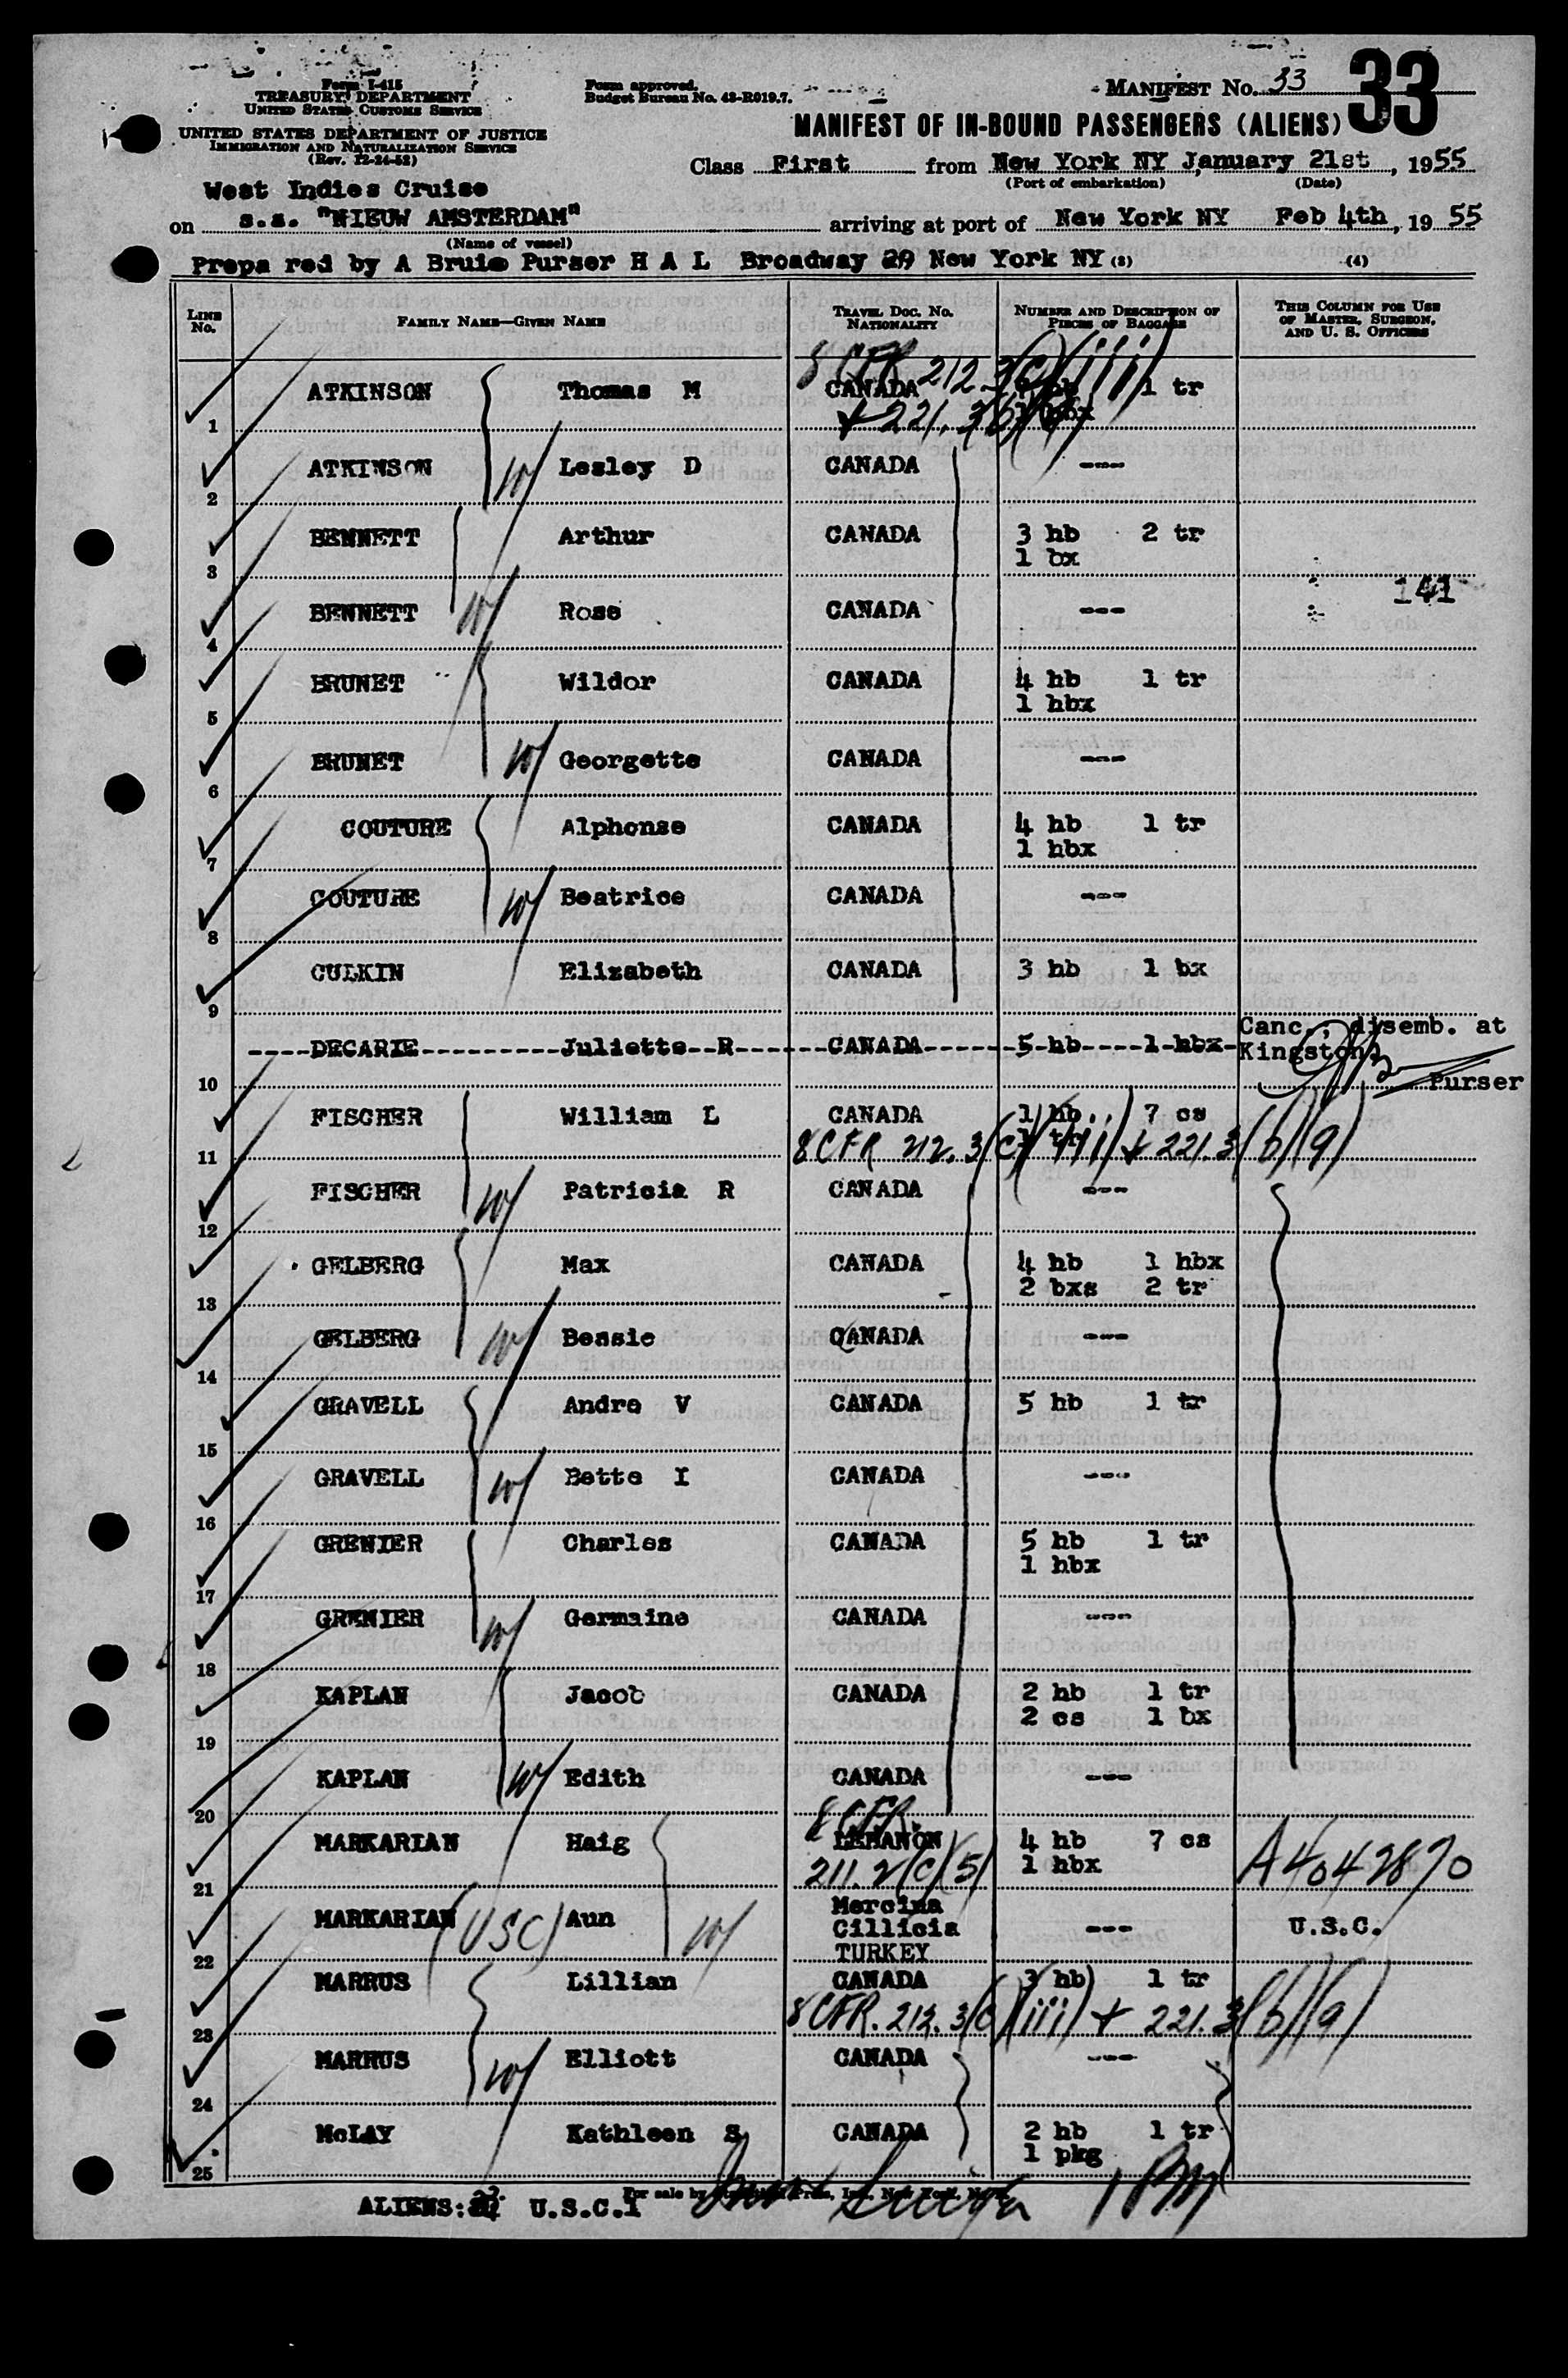 Form I-415
TREASURY DEPARTMENT
UNITED STATES CUSTOMS SERVICE
UNITED STATES DEPARTMENT OF JUSTICE
IMMIGRATION AND NATURALIZATION SERVICE
(Rev. 12-24-52)
Form approved.
Budget Bureau No. 43-R019.7.
MANIFEST No. 33
33
MANIFEST OF IN-BOUND PASSENGERS (ALIENS)
Class First from New York NY January 21st, 1955
(Port of embarkation) (Date)
West Indies Cruise
on s.s. "NIEUW AMSTERDAM" arriving at port of New York NY Feb 4th, 1955
(Name of vessel)
Prepa red by A Bruis Purser H A L Broadway 29 New York NY (3) (4)
LINE No. FAMILY NAME—GIVEN NAME TRAVEL DOC. NO. NATIONALITY NUMBER AND DESCRIPTION OF PIECES OF BAGGAGE THIS COLUMN FOR USE OF MASTER, SURGEON, AND U. S. OFFICERS
8 CFR 212.3(c)(iii)
1 ATKINSON Thomas M CANADA hb 1 tr
hbx
+ 221.3(b)(9)
2 ATKINSON W/ Lesley D CANADA ---
3 BENNETT Arthur CANADA 3 hb 2 tr
1 bx
141
4 BENNETT W/ Rose CANADA ---
5 BRUNET Wildor CANADA 4 hb 1 tr
1 hbx
6 BRUNET W/ Georgette CANADA ---
7 COUTURE Alphonse CANADA 4 hb 1 tr
1 hbx
8 COUTURE W/ Beatrice CANADA ---
9 CULKIN Elizabeth CANADA 3 hb 1 bx
10 DECARIE Juliette R CANADA 5 hb 1 hbx Canc., disemb. at
Kingston
Purser
11 FISCHER William L CANADA 1 hb 7 cs
1 tr
8 CFR 212.3(c)(iii) + 221.3(b)(9)
12 FISCHER W/ Patricia R CANADA ---
13 GELBERG Max CANADA 4 hb 1 hbx
2 bxs 2 tr
14 GELBERG W/ Bessie CANADA ---
15 GRAVELL Andre V CANADA 5 hb 1 tr
16 GRAVELL W/ Bette I CANADA ---
17 GRENIER Charles CANADA 5 hb 1 tr
1 hbx
18 GRENIER W/ Germaine CANADA ---
19 KAPLAN Jacob CANADA 2 hb 1 tr
2 cs 1 bx
20 KAPLAN W/ Edith CANADA ---
8 CFR.
21 MARKARIAN Haig LEBANON 4 hb 7 cs
1 hbx
211.2(c)(5) A4042870
22 MARKARIAN (USC) Aun W/ Mercina
Cillicia
TURKEY --- U.S.C.
23 MARRUS Lillian CANADA 3 hb 1 tr
8 CFR. 212.3(c)(iii) + 221.3(b)(9)
24 MARRUS W/ Elliott CANADA ---
25 McLAY Kathleen S CANADA 2 hb 1 tr
1 pkg
For sale by
ALIENS: U.S.C.1